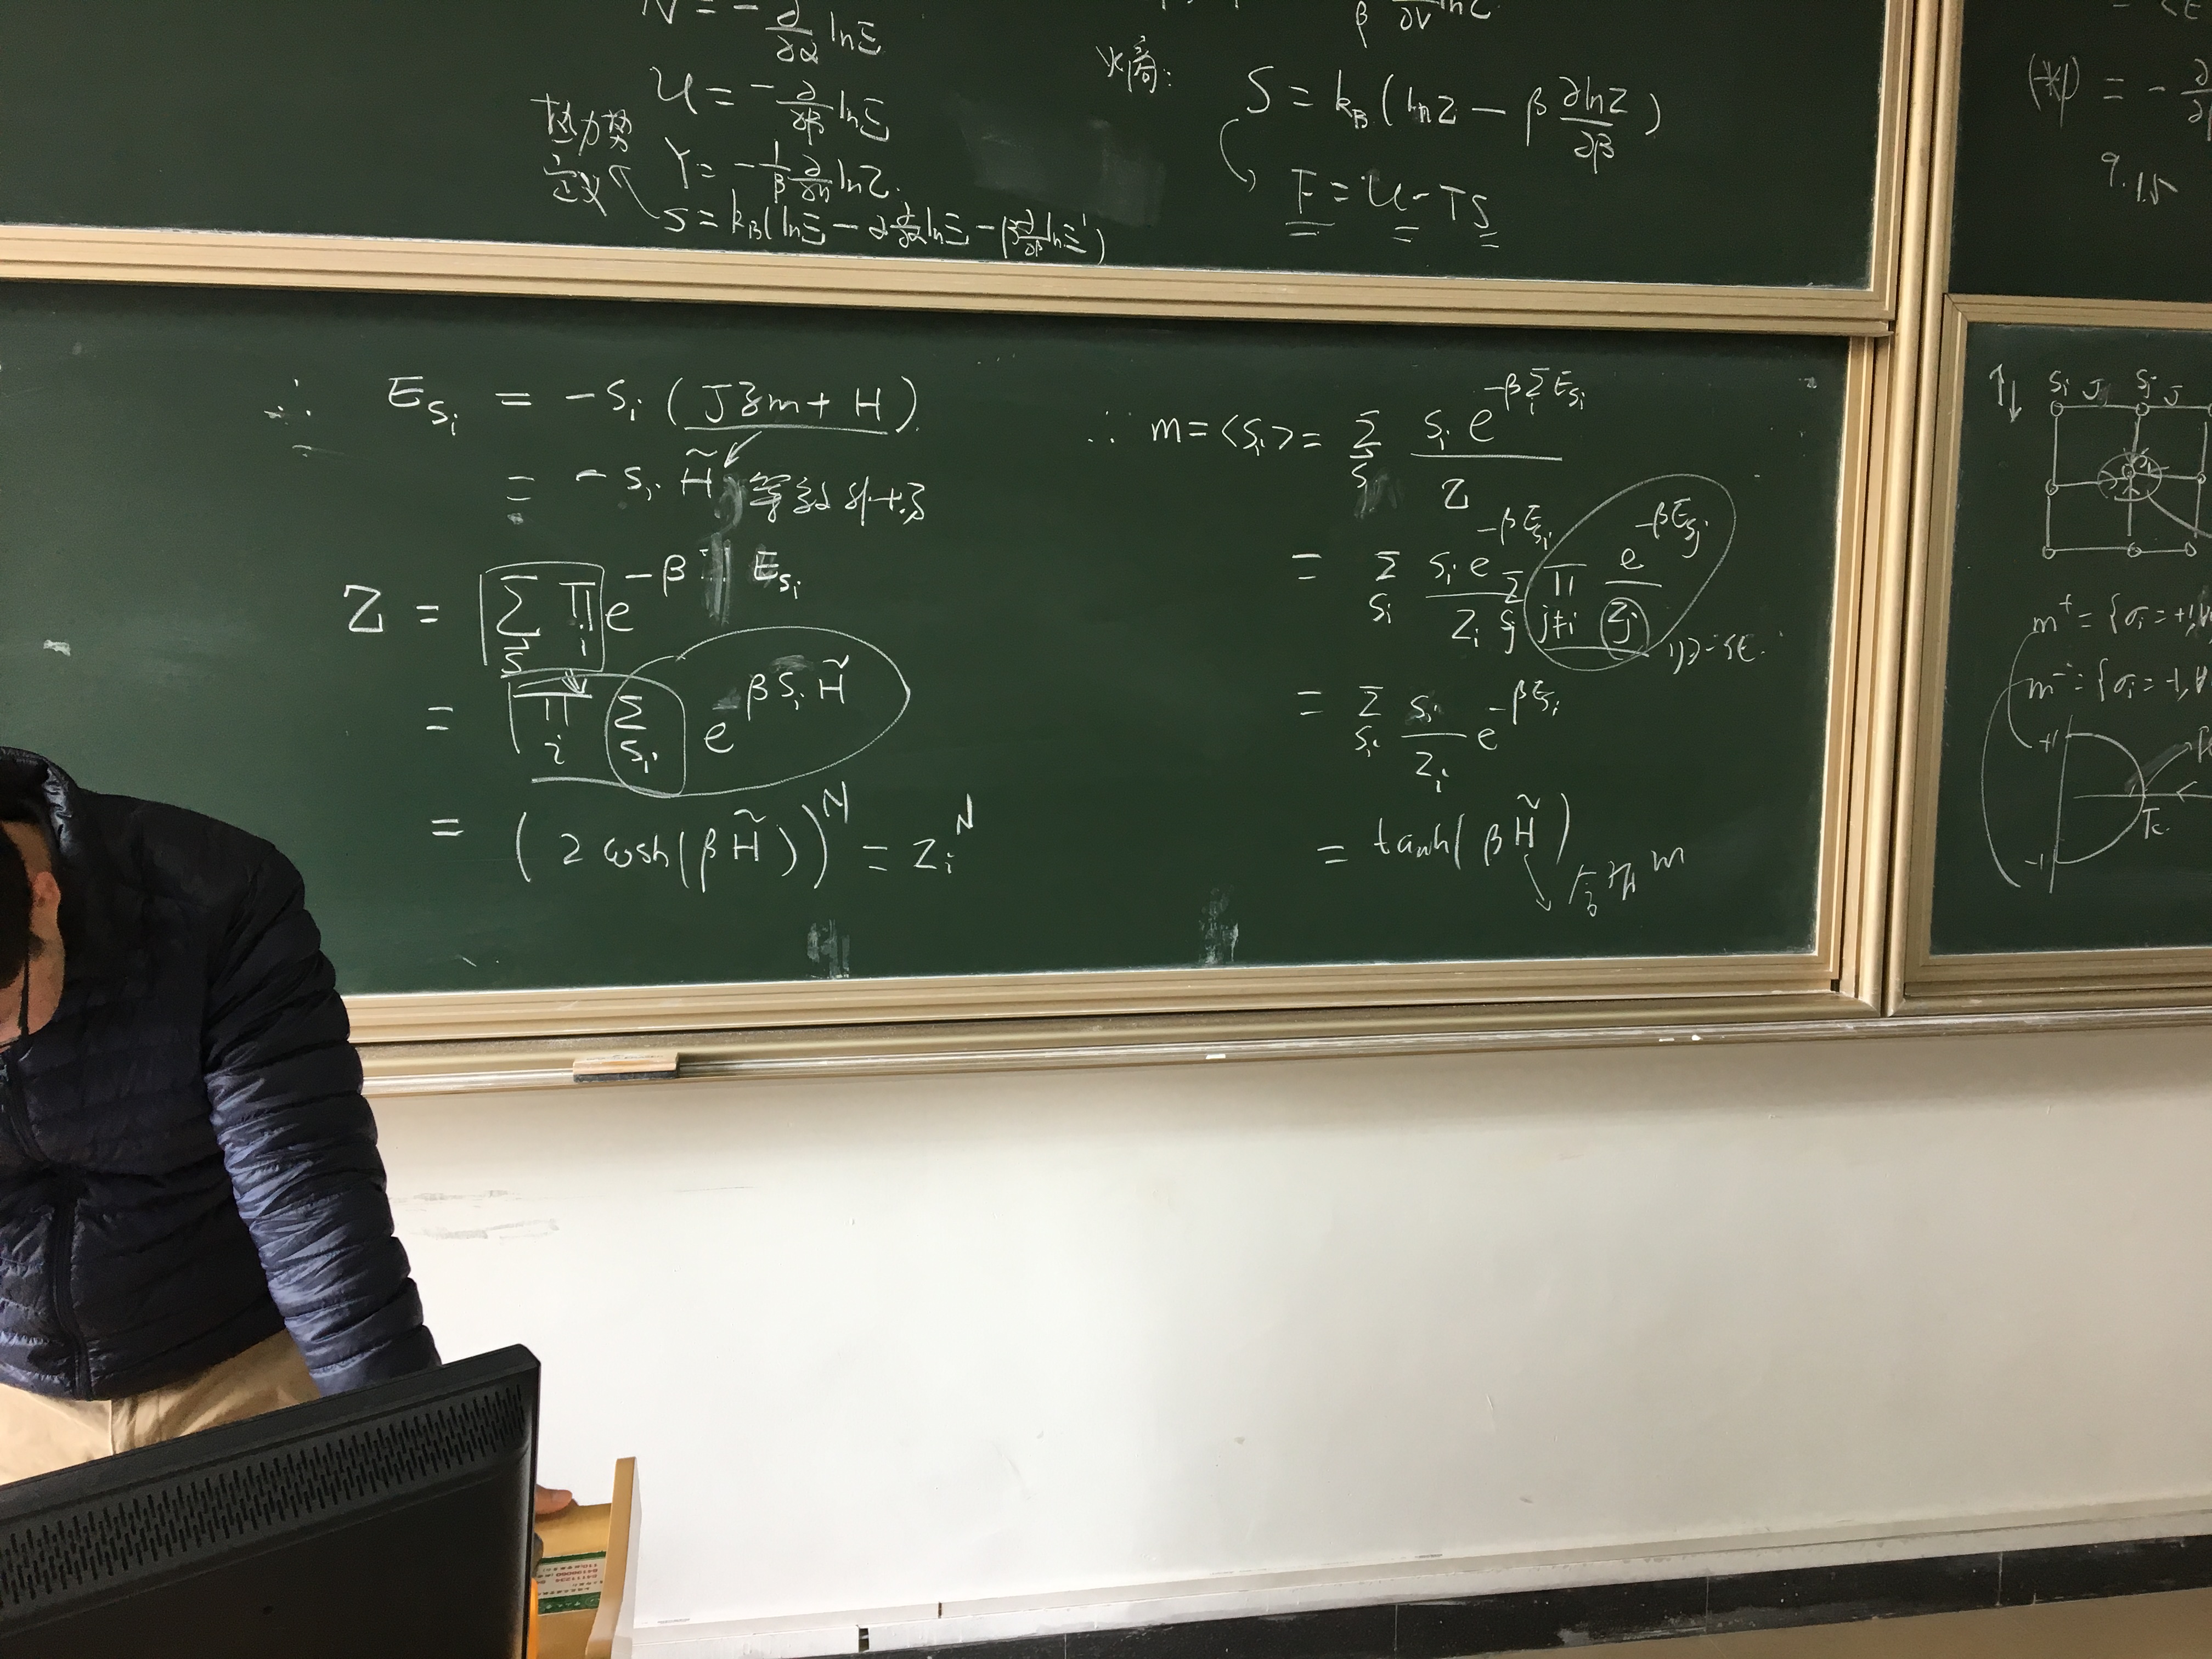 N = - ∂/∂α lnΞ
U = - ∂/∂β lnΞ
热力势
定义
Y = - 1/β ∂/∂η lnZ.
S = k_B ( lnΞ - α ∂/∂α lnΞ - β ∂/∂β lnΞ )
β ∂V lnZ
火商:
S = k_B ( lnZ - β ∂lnZ/∂β )
F = U - TS
∴ E_{S_i} = - S_i ( Jzm + H ).
= - S_i H̃ 等效外场
Z = Σ_{S⃗} Π_i e^{-β E_{S_i}}
= Π_i Σ_{S_i} e^{β S_i H̃}
= ( 2 cosh( β H̃ ) )^N = Z_i^N
∴ m = <S_i> = Σ_{S⃗} S_i e^{-β Σ_i E_{S_i}} / Z
= Σ_{S_i} S_i e^{-β E_{S_i}} / Z_i Σ_{S_j} Π_{j≠i} e^{-β E_{S_j}} / Z_j 归一化.
= Σ_{S_i} S_i / Z_i e^{-β E_{S_i}}
= tanh( β H̃ )
含有 m
= - ∂
9.15
S_i J S_j J
m⁺ = {σ_i = +1, ∀
m⁻ = {σ_i = -1, ∀
+1
Tc.
-1